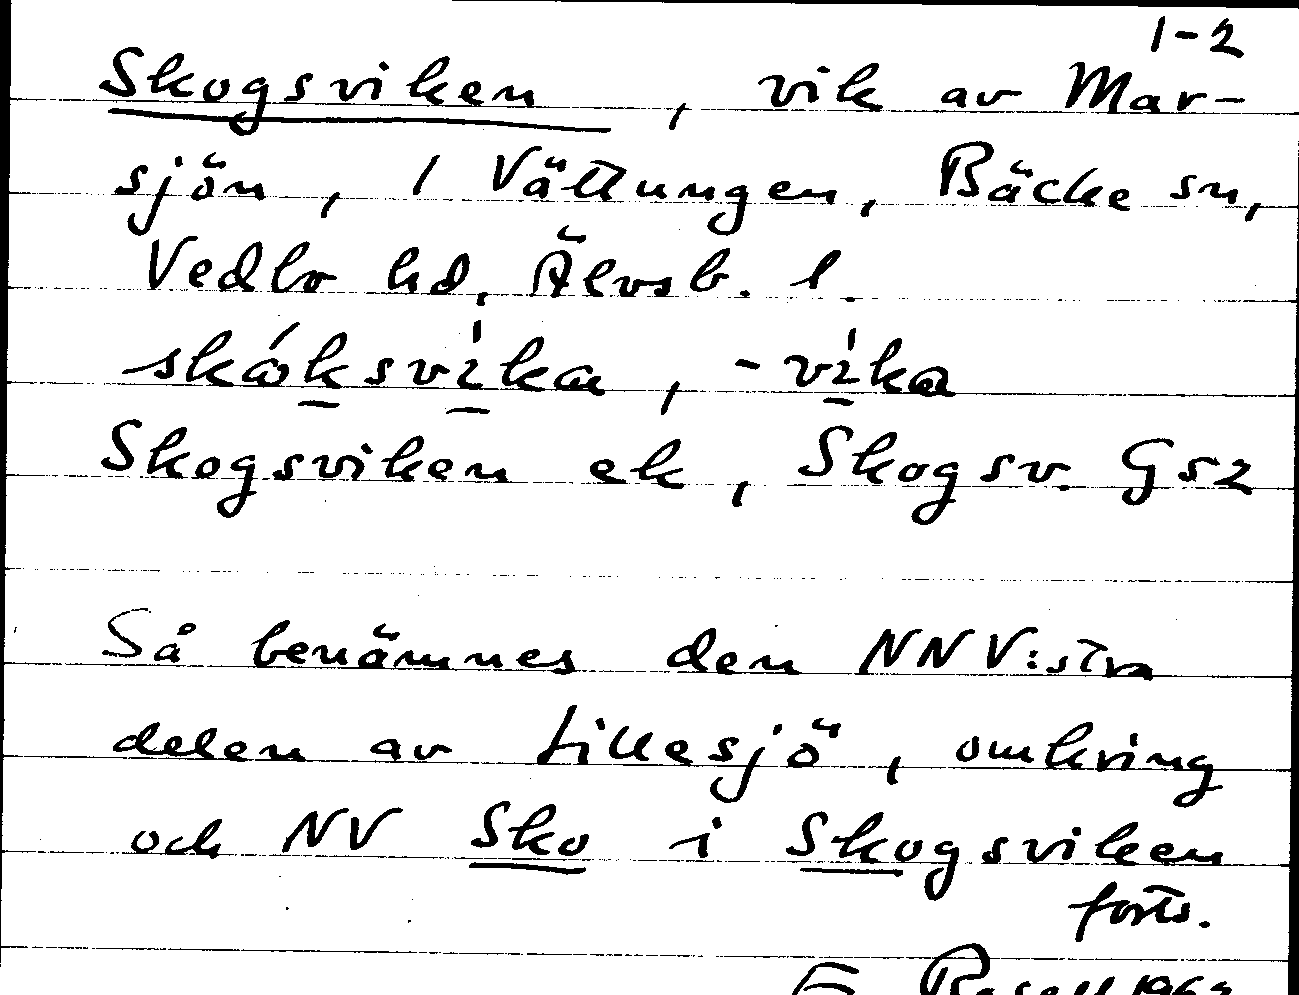 1-2
Skogsviken, vik av Mar-
sjön, 1 Vättungen, Bäcke sn,
Vedbo hd, Älvsb. l.
skóksvíka, -víka
Skogsviken ek, Skogsv. GS2
Så benämnes den NNV:stra
delen av Lillesjö, omkring
och NV Sko i Skogsviken
forts.
E Rosell 1962